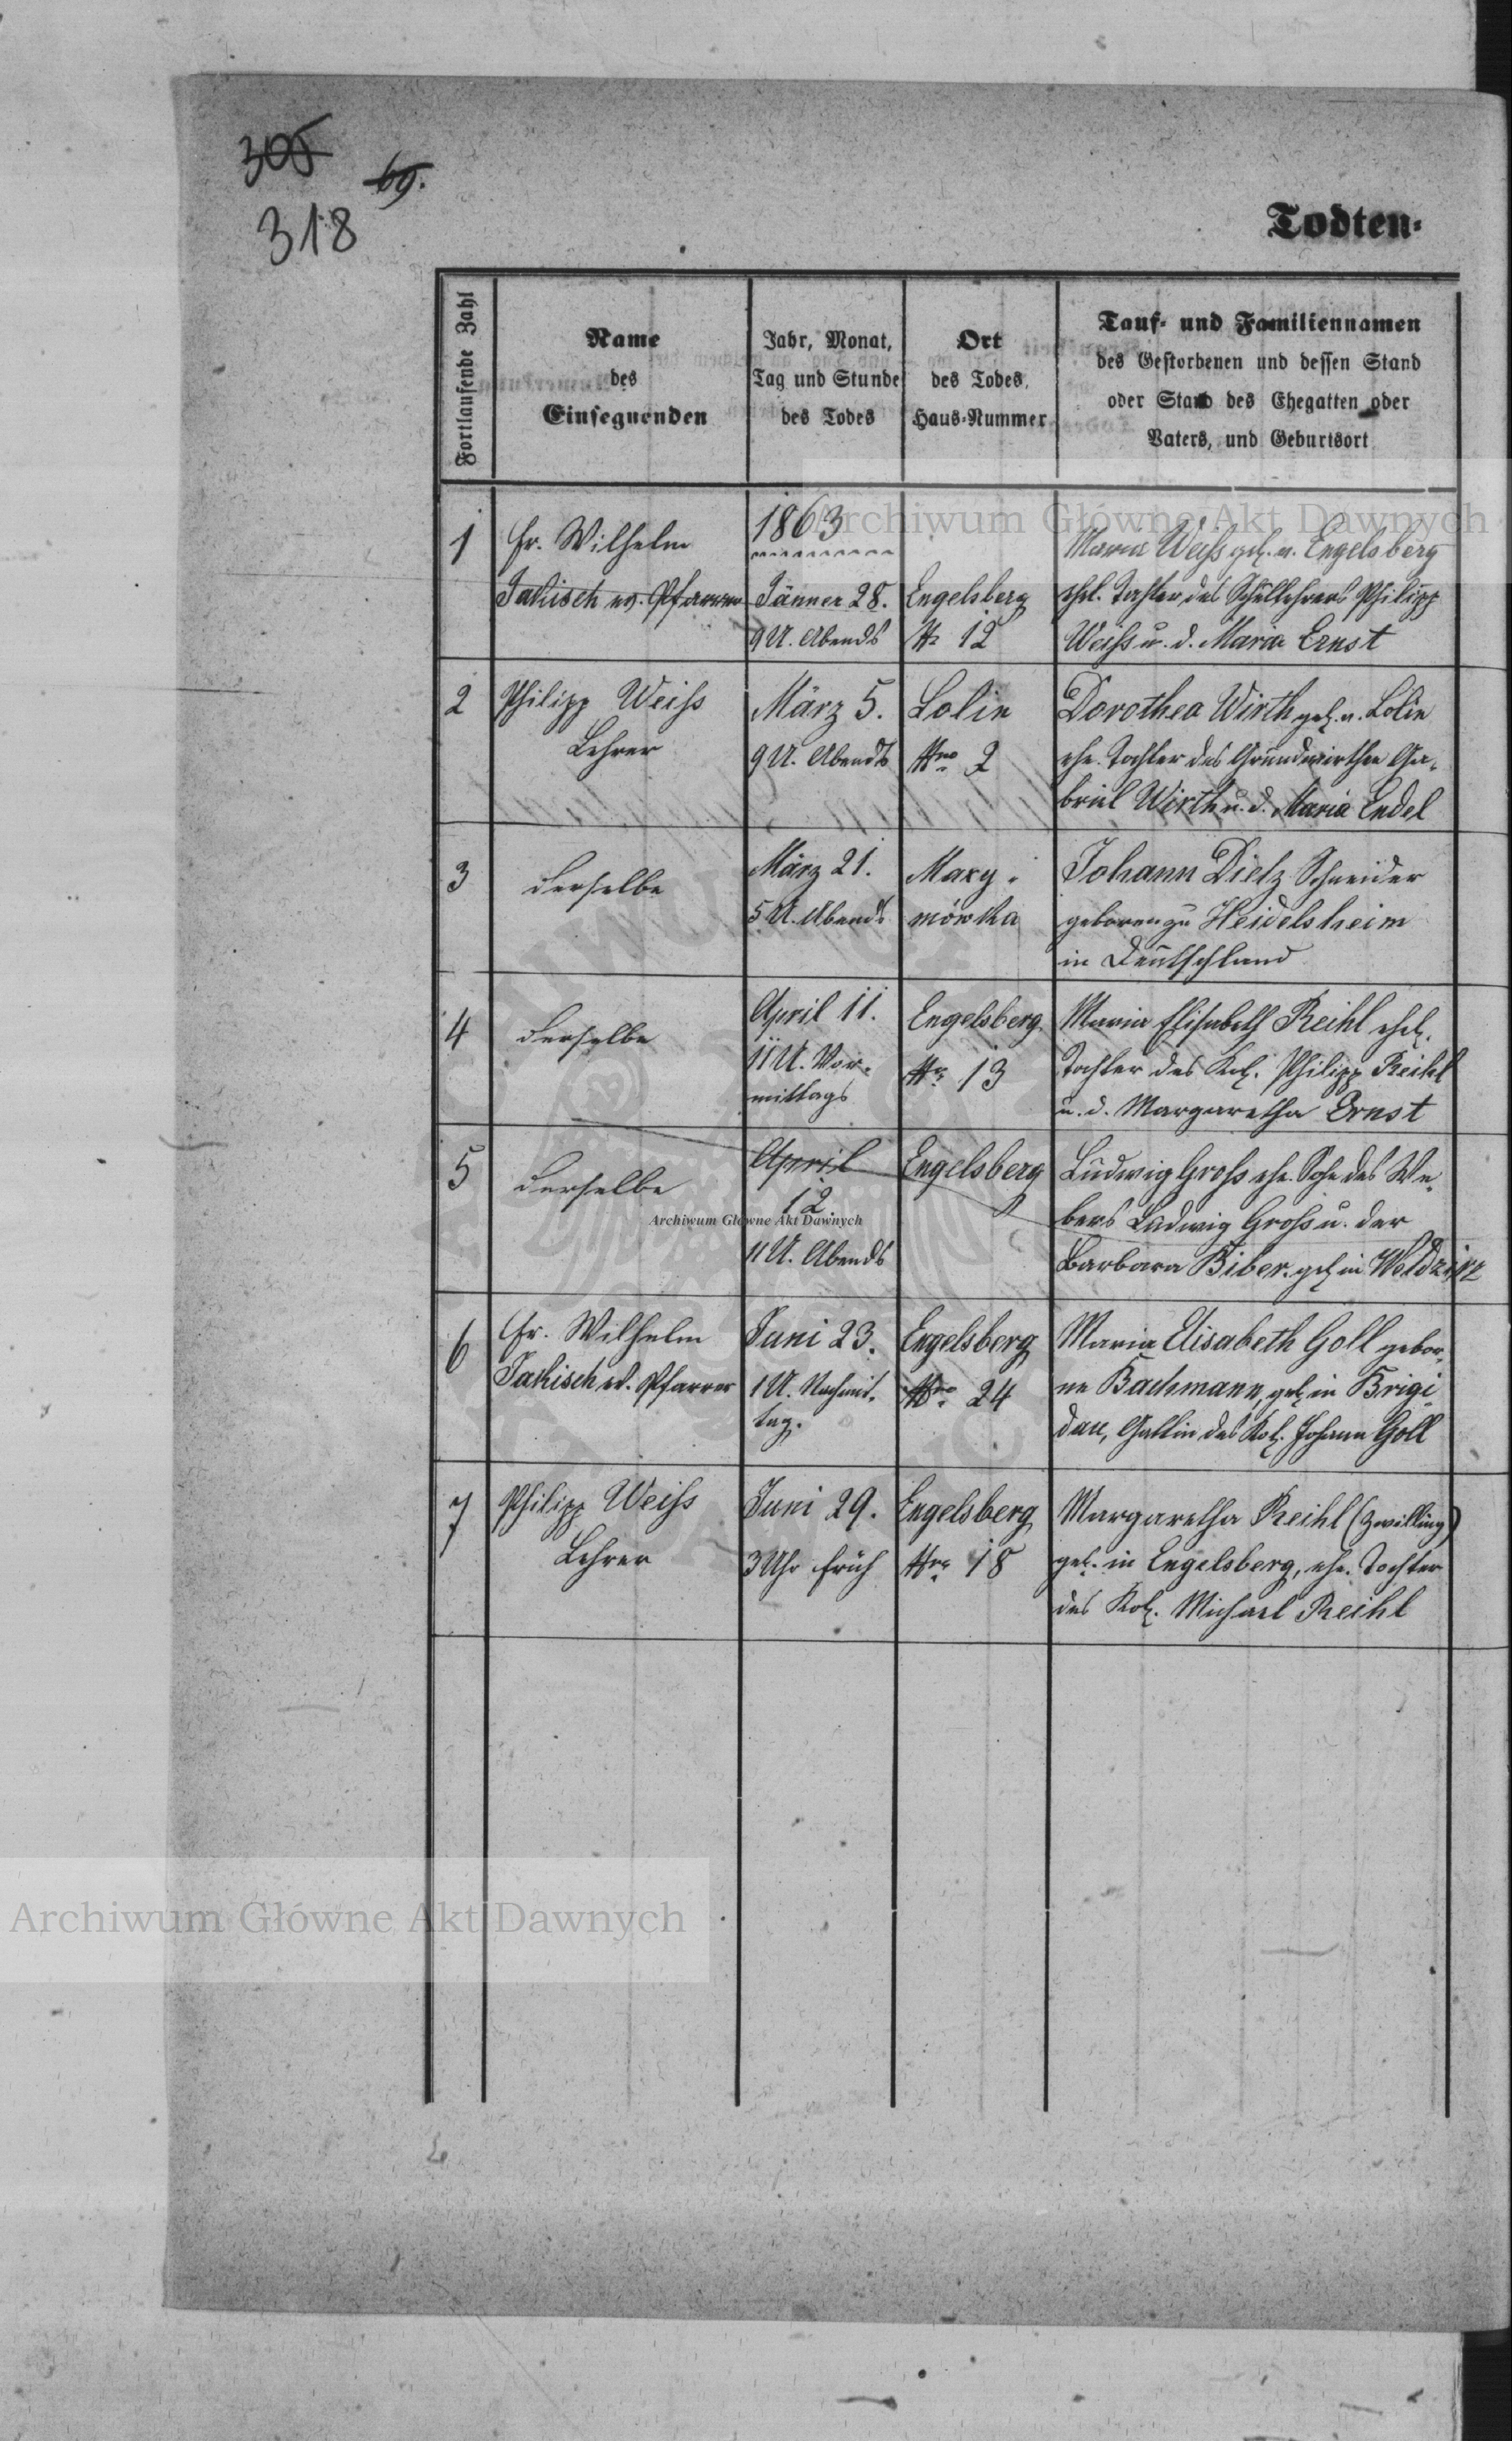 305
69.
318
Todten-
Fortlaufende Zahl
Name
des
Einsegnenden
Jahr, Monat,
Tag und Stunde
des Todes
Ort
des Todes,
Haus-Nummer
Tauf- und Familiennamen
des Gestorbenen und dessen Stand
oder Stand des Ehegatten oder
Vaters, und Geburtsort
Archiwum Główne Akt Dawnych
1
Fr. Wilhelm
Jakisch ev. Pfarrer
1863
Jänner 28.
9 U. Abends
Engelsberg
12
Maria Weiss geb. n. Engelsberg
ehel. Tochter des Schullehrers Philipp
Weiss u. d. Maria Ernst
2
Philipp Weiss
Lehrer
März 5.
9 U. Abends
Lolin
Nro 2
Dorothea Wirth geb. n. Lolin
ehe. Tochter des Grundwirthen Ga-
briel Wirth u. d. Maria Endel
3
derselbe
März 21.
5 U. Abends
Maxy-
mówka
Johann Dietz Schneider
geboren zu Heidelsheim
in Deutschland
4
derselbe
April 11.
11 U. Vor-
mittags
Engelsberg
13
Maria Elisabeth Reihl ehel.
Tochter des Kol. Philipp Reihl
u. d. Margaretha Ernst
5
derselbe
April
12.
11 U. Abends
Engelsberg
Ludwig Gross ehe. Sohn des We-
bers Ludwig Gross u. der
Barbara Biber. geb in Weldzirz
Archiwum Główne Akt Dawnych
6
Fr. Wilhelm
Jakisch ev. Pfarrer
Juni 23.
1 U. Nachmit-
tag.
Engelsberg
Nro 24
Maria Elisabeth Goll gebor-
ne Bachmann, geb in Brigi-
dau, Gattin des Kol. Johann Goll
7
Philipp Weiss
Lehrer
Juni 29.
3 Uhr früh
Engelsberg
Nro 18
Margaretha Reihl (Zwilling)
geb. in Engelsberg, ehe. Tochter
des Kol. Michael Reihl
Archiwum Główne Akt Dawnych